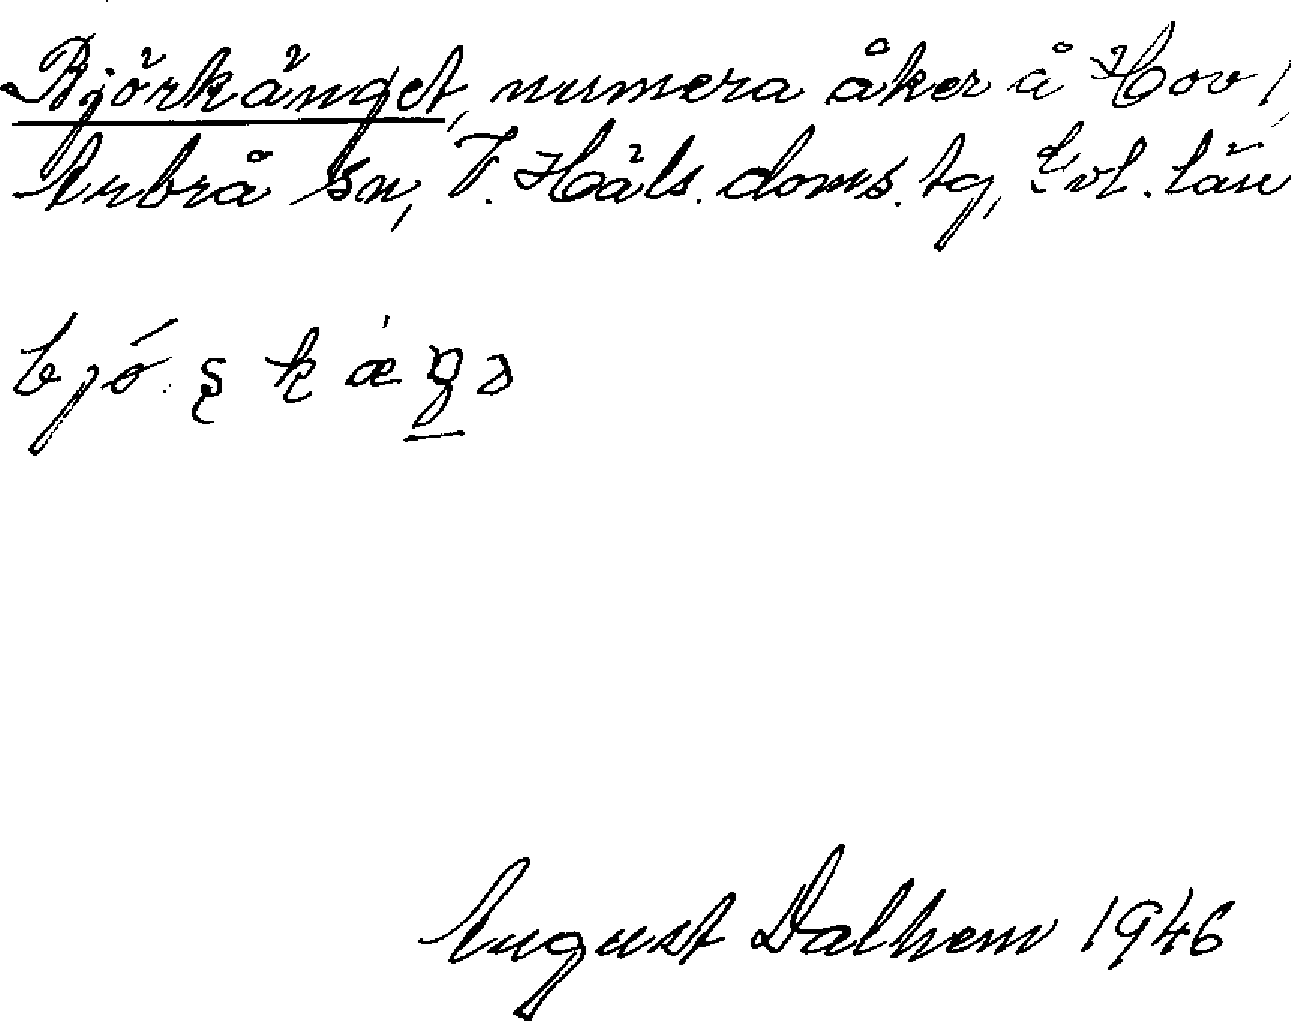 Björkänget, numera åker å Hov 1,
Arbrå sn, V. Häls. doms. tg, Gvl. län
bjó. ʂ k æ̀ ŋ ə
August Dalhem 1946